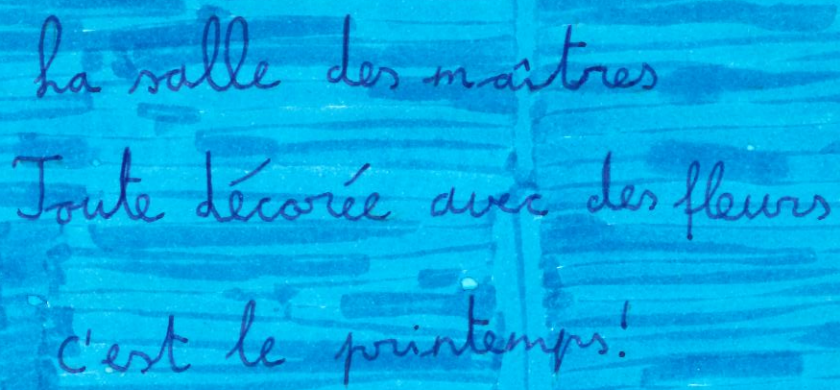 La salle des maîtres
Toute décorée avec des fleurs
c'est le printemps!